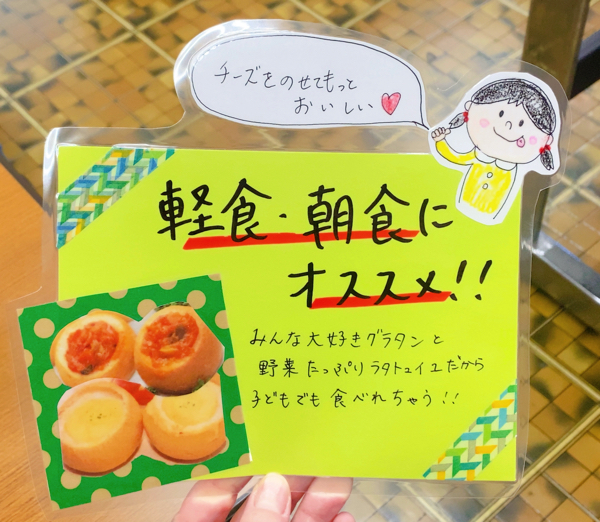 チーズをのせてもっと
おいしい
軽食・朝食に
オススメ!!
みんな大好きグラタンと
野菜たっぷりラタトゥイユだから
子どもでも食べれちゃう!!